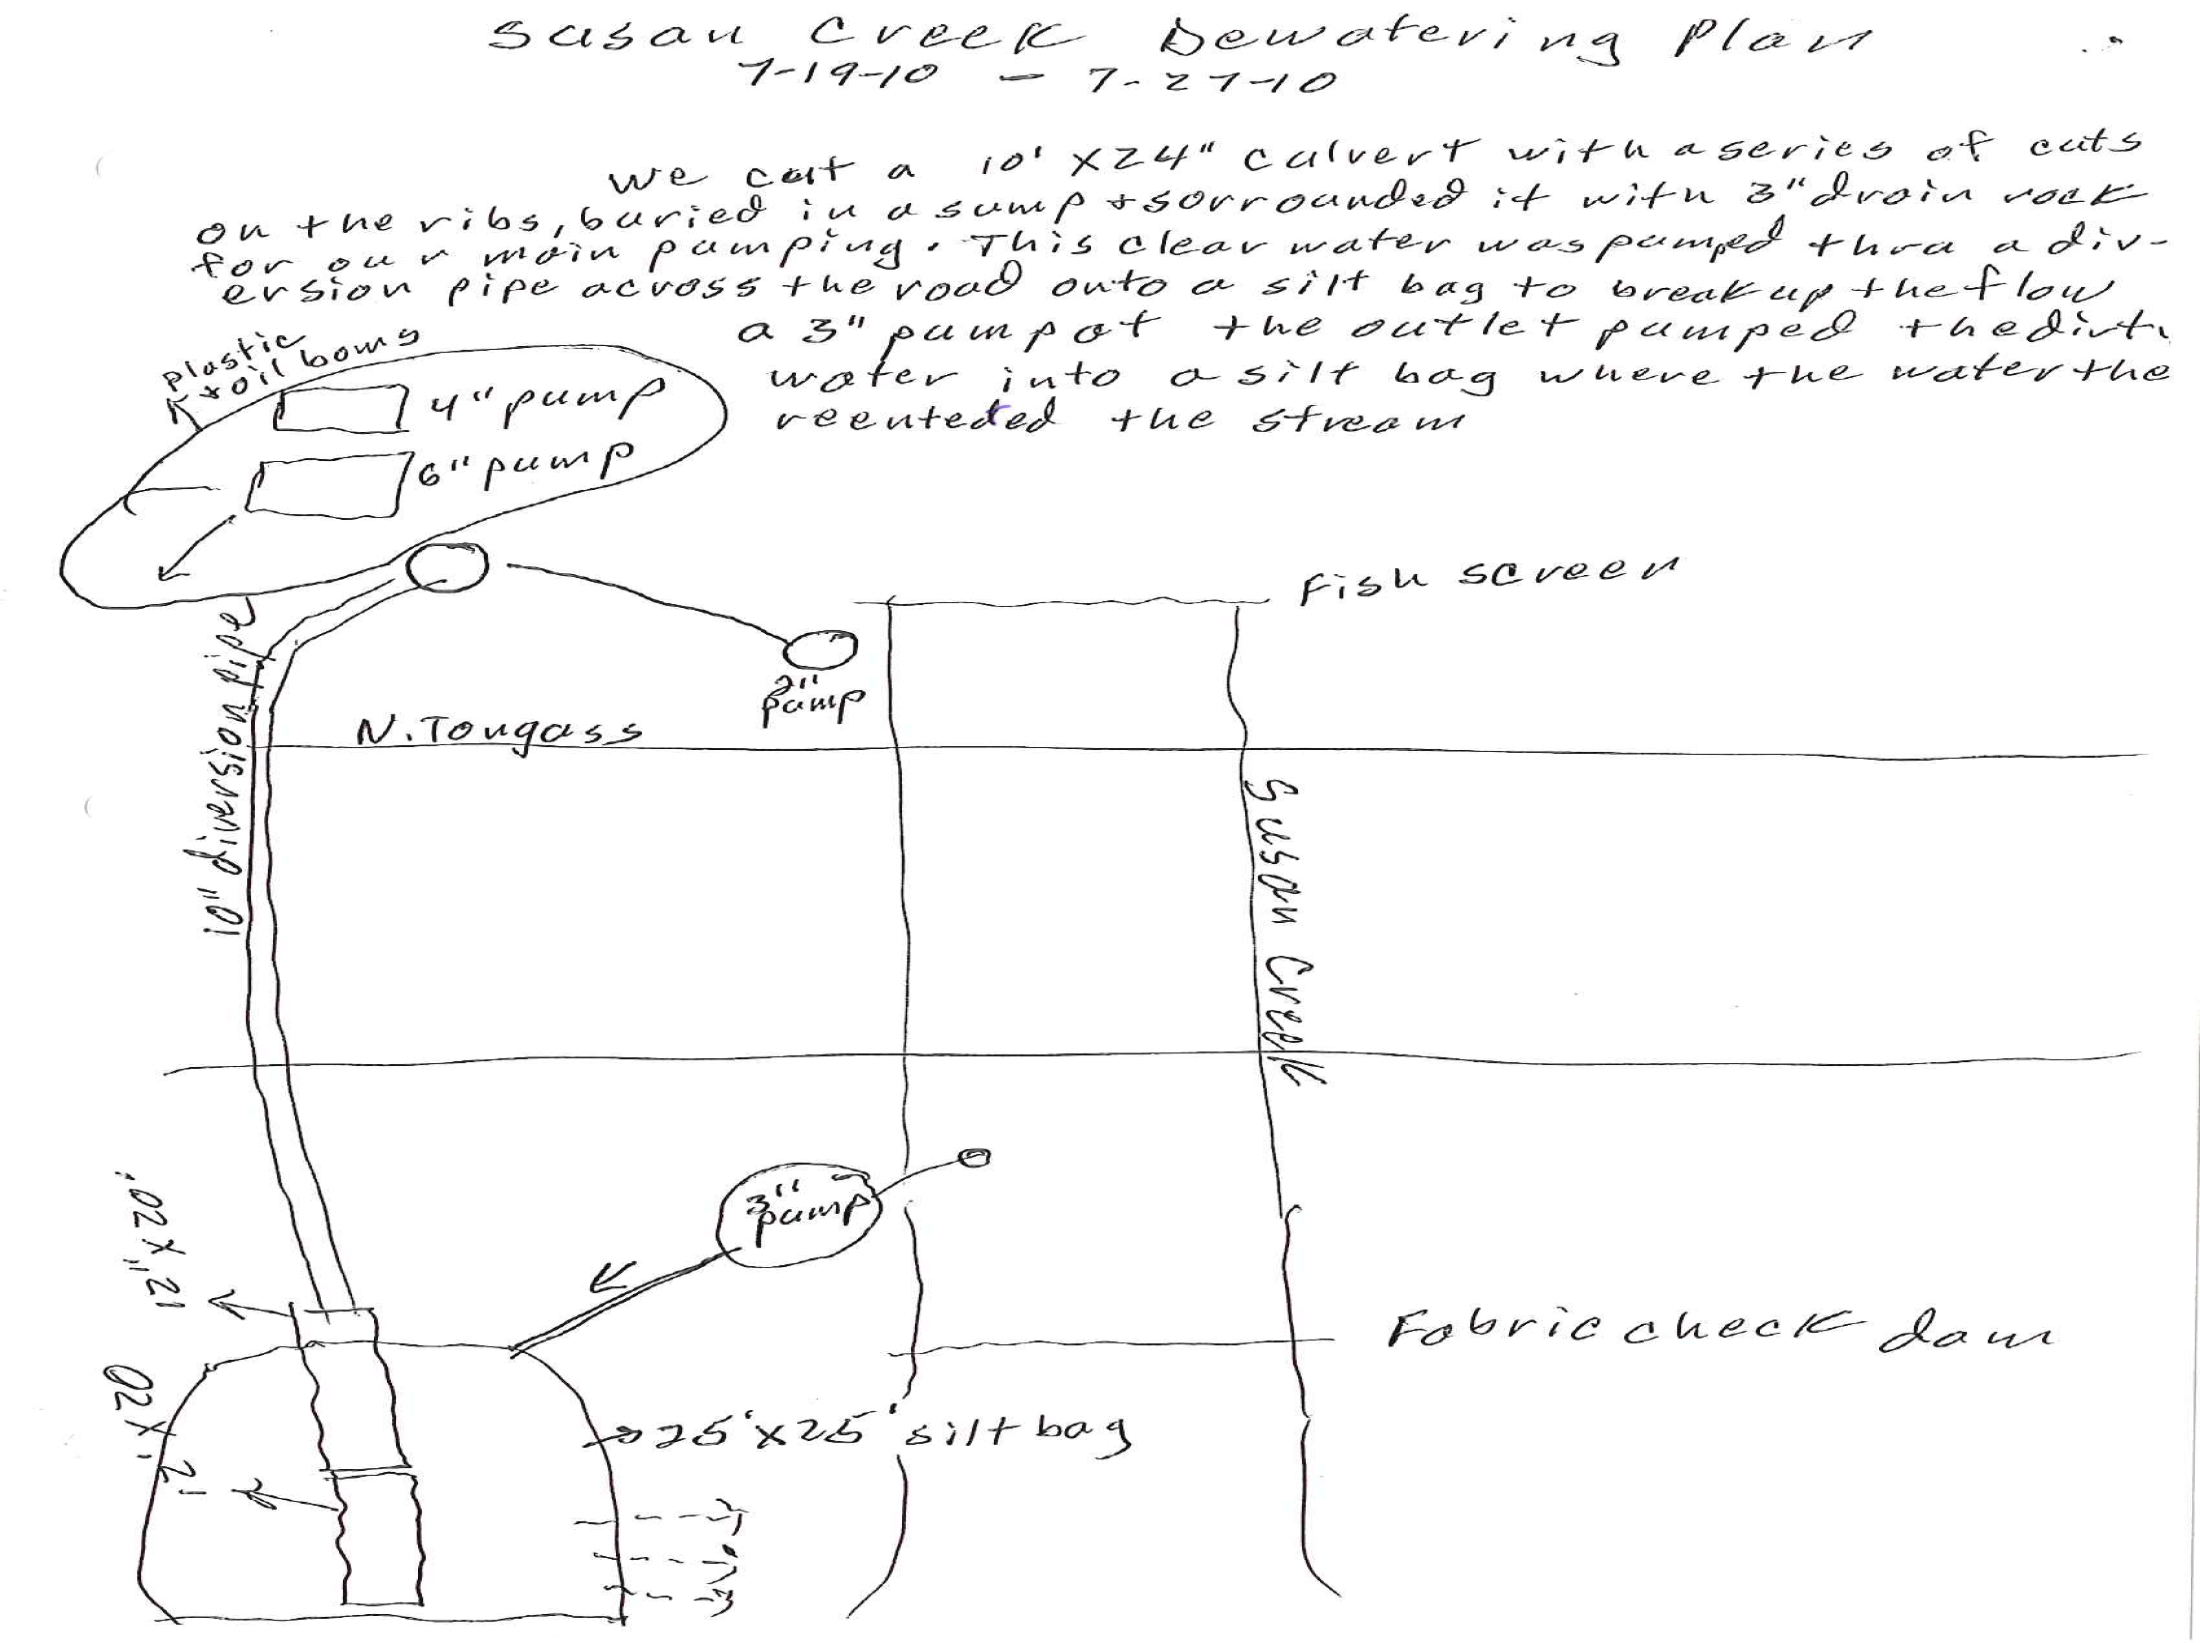 Susan Creek Dewatering Plan
7-19-10 - 7-27-10
We cut a 10' x 24" culvert with a series of cuts
on the ribs, buried in a sump + sorrounded it with 3" drain rock
for our main pumping. This clear water was pumped thru a div-
ersion pipe across the road onto a silt bag to break up the flow
a 3" pump at the outlet pumped the
water into a silt bag where the water the
reenteted the stream
plastic
+ oil boms
4" pump
6" pump
Fish screen
pump
10" diversion pipe
N. Tongass
Susan Creek
3"
pump
12" x 20'
Fabric check dam
25' x 25' silt bag